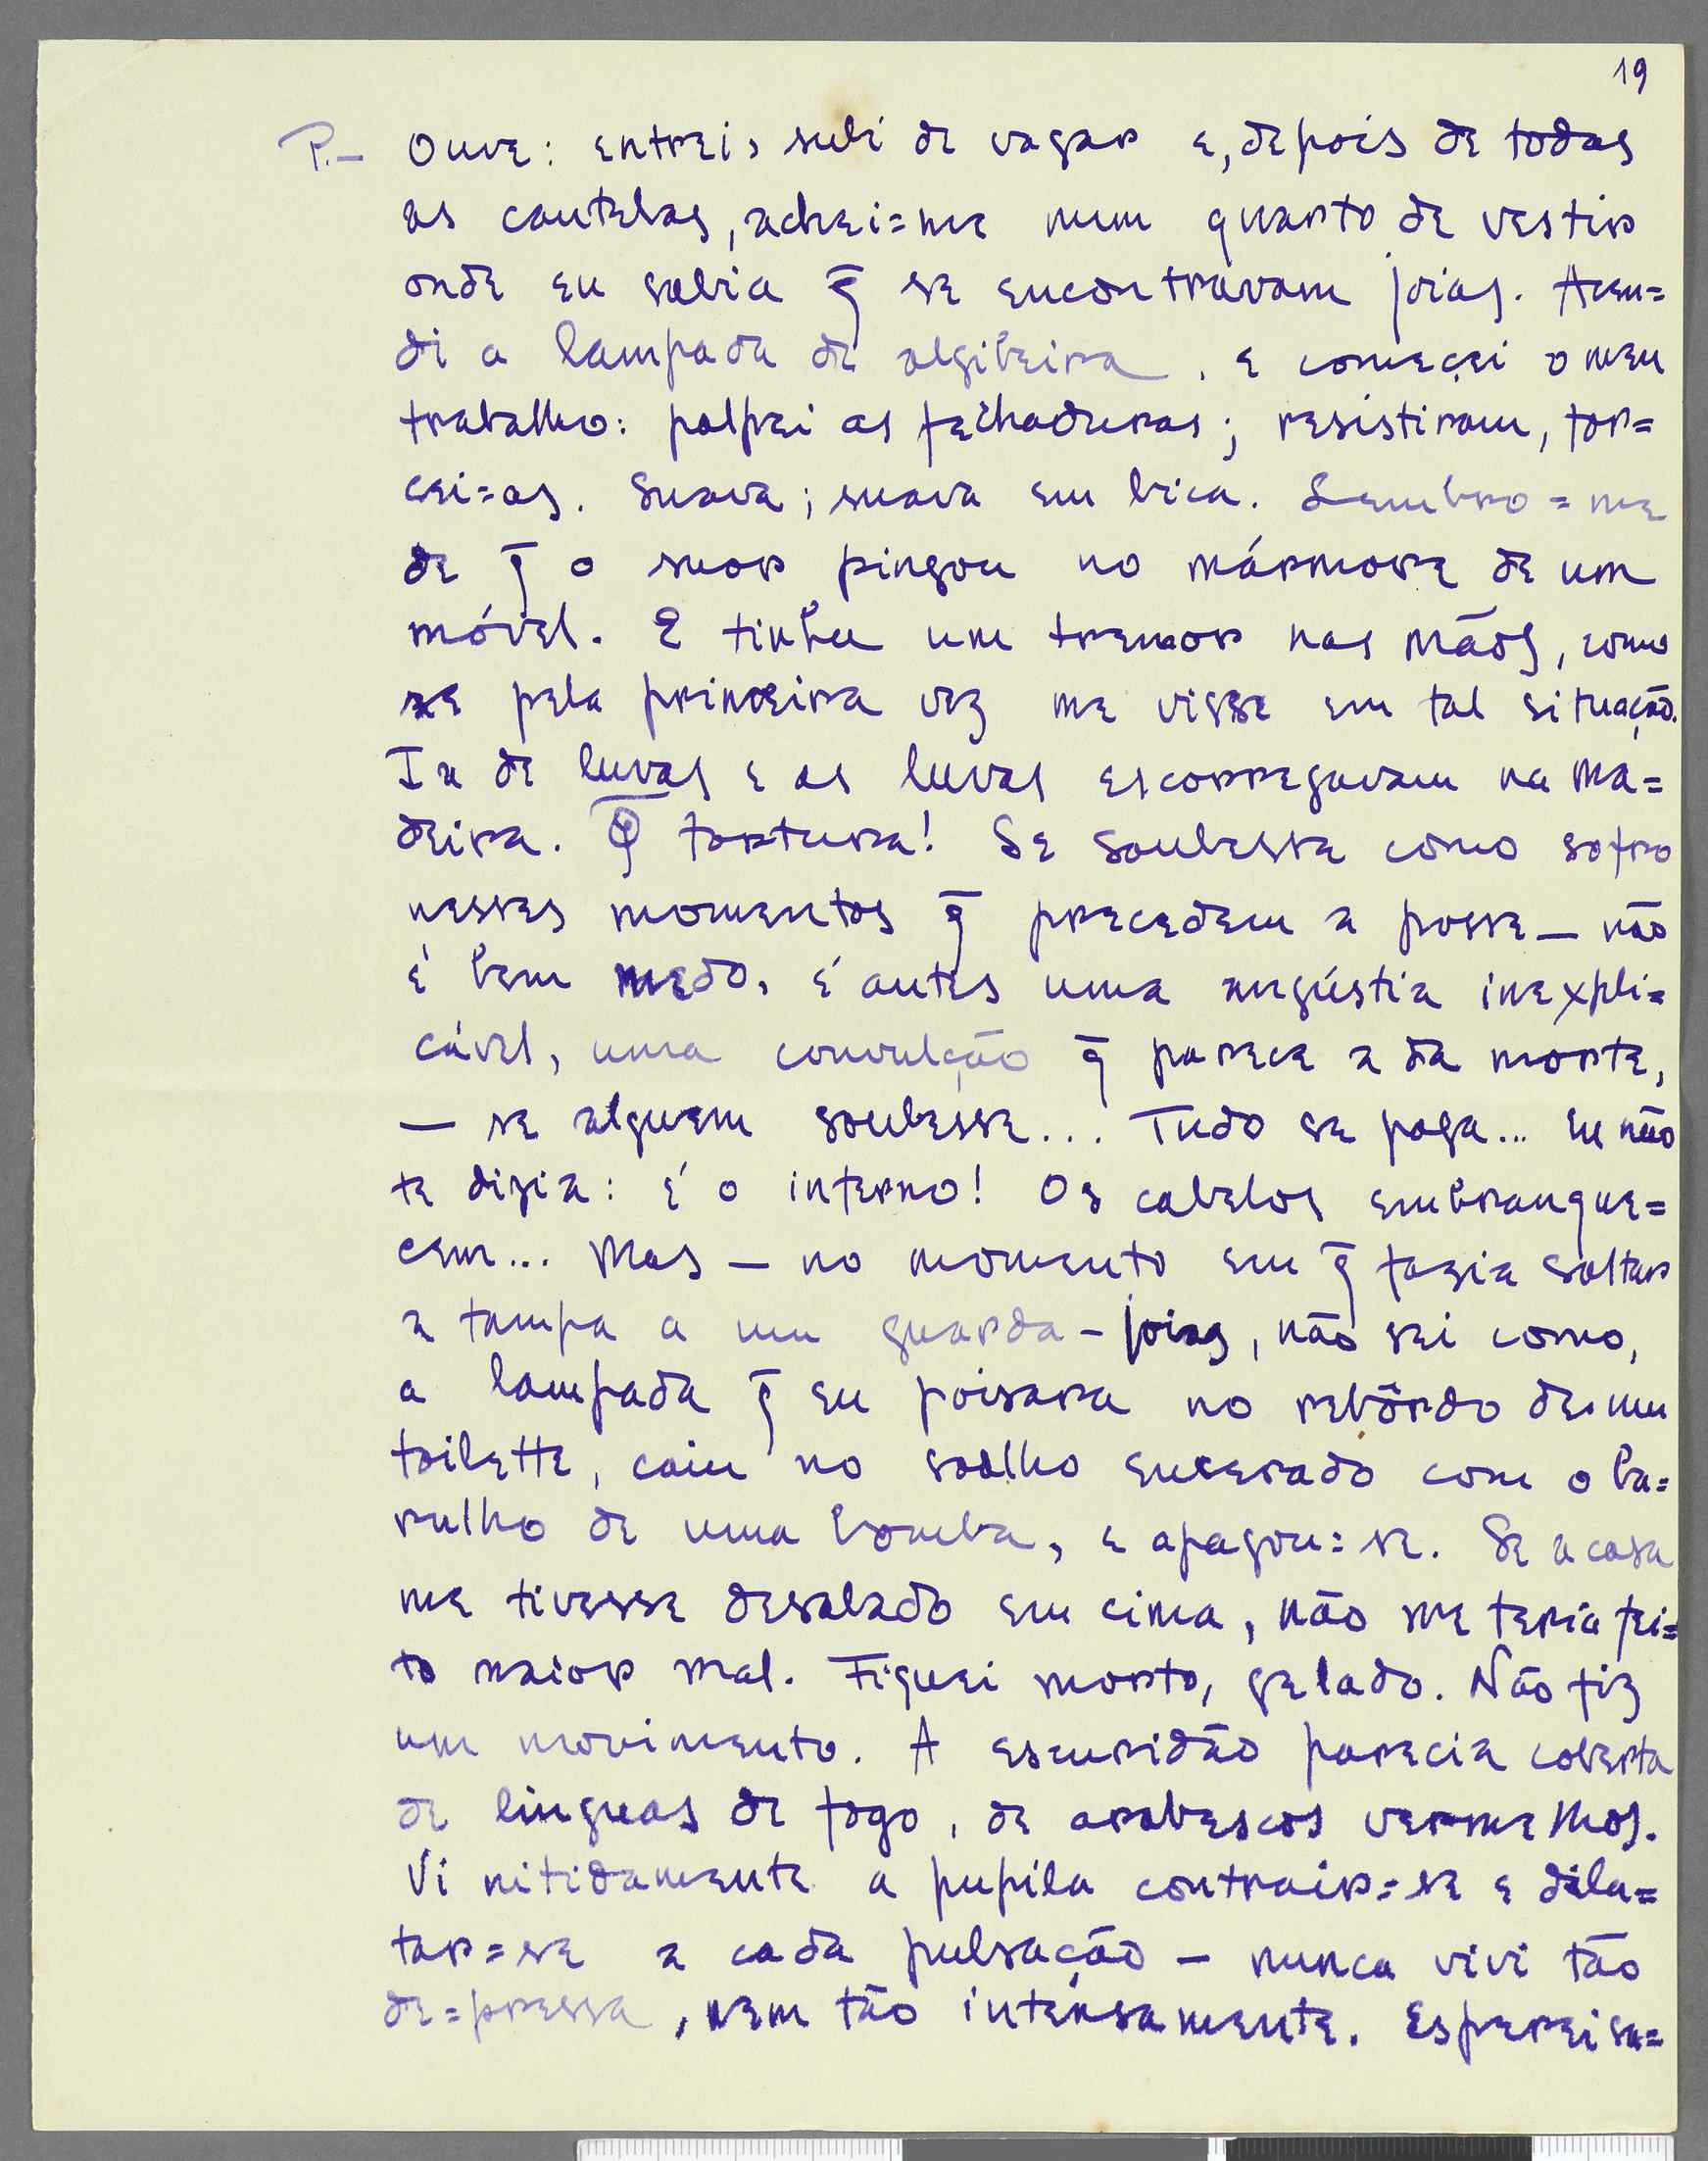 19
P.— Ouve: entrei, subi de vagar e, depois de todas
as cautelas, achei=me num quarto de vestir
onde eu sabia q̄ se encontravam joias. Acen=
di a lampada de algibeira, e começei o meu
trabalho: palpei as fechaduras; resistiram, tor=
cei=as. Suava; suava em bica. Lembro=me
de q̄ o suor pingou no mármore de um
móvel. E tinha um tremor nas mãos, como
se pela primeira vez me visse em tal situação.
Ia de luvas e as luvas escorregavam na ma=
deira. Q̄ tortura! Se soubesse como sofro
nesses momentos q̄ precedem a posse — não
é bem medo, é antes uma angústia inexpli=
cável, uma convulção q̄ parece a da morte,
— se alguem soubesse... Tudo se paga... Eu não
te dizia: é o inferno! Os cabelos embranque=
cem... Mas — no momento em q̄ fazia saltar
a tampa a um guarda-joias, não sei como,
a lampada q̄ eu poisara no rebôrdo de um
toilette, caiu no soalho encerado com o ba=
rulho de uma bomba, e apagou=se. Se a casa
me tivesse desabado em cima, não me teria fei=
to maior mal. Fiquei morto, gelado. Não fiz
um movimento. A escuridão parecia coberta
de linguas de fogo, de arabescos vermelhos.
Vi nitidamente a pupila contrair=se e dila=
tar=se a cada pulsação — nunca vivi tão
de=pressa, nem tão intensamente. Esperei su=